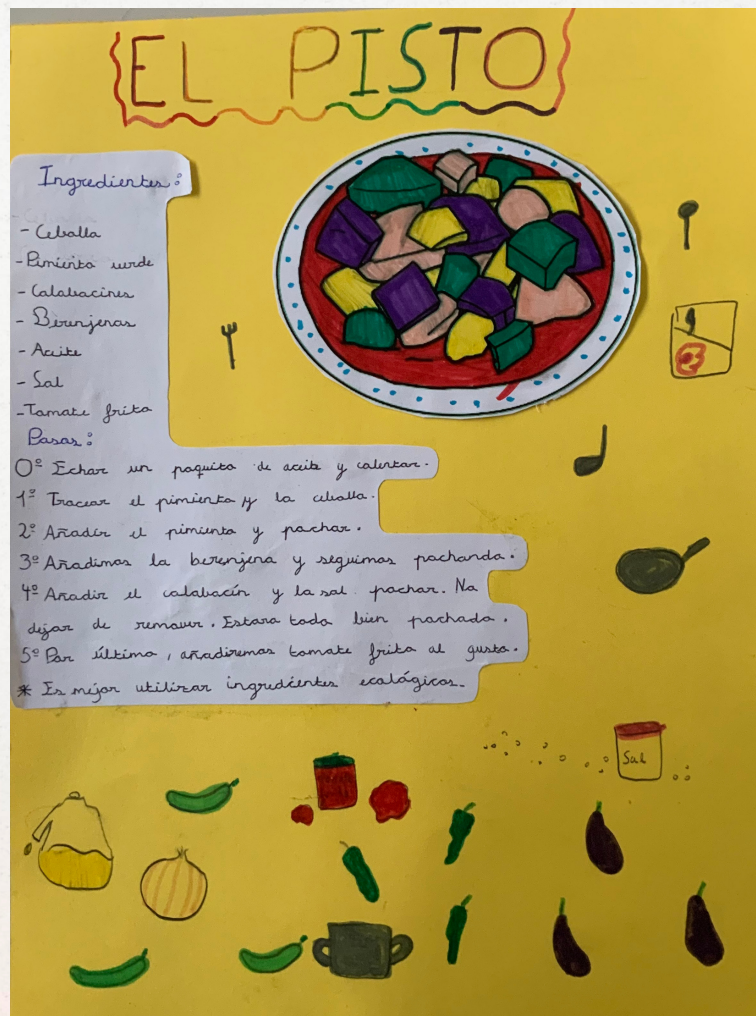 EL PISTO
Ingredientes:
- Cebolla
- Pimiento verde
- Calabacines
- Berenjenas
- Aceite
- Sal
- Tomate frito
Pasos:
0º Echar un poquito de aceite y calentar.
1º Trocear el pimiento y la cebolla.
2º Añadir el pimiento y pochar.
3º Añadimos la berenjena y seguimos pochando.
4º Añadir el calabacín y la sal. pochar. No
dejar de remover. Estara todo bien pochado.
5º Por último, añadiremos tomate frito al gusto.
* Es mejor utilizar ingredientes ecológicos.
Sal